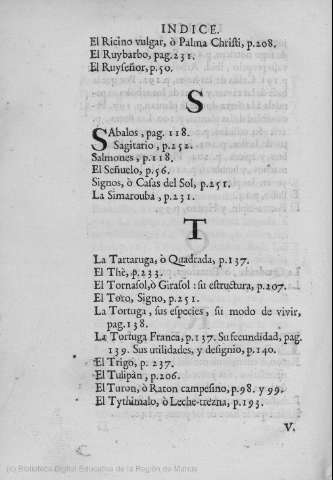 INDICE.
El Ricino vulgar, ò Palma Christi, p.208.
El Ruybarbo, pag.231.
El Ruyseñor, p.50.
S
SAbalos, pag. 118.
Sagitario, p.252.
Salmones, p.118.
El Señuelo, p.56.
Signos, ò Casas del Sol, p.251.
La Simarouba, p.231.
T
La Tartaruga, ò Quadrada, p.137.
El Thè, p.233.
El Tornasol, ò Girasol: su estructura, p.207.
El Toro, Signo, p.251.
La Tortuga, sus especies, su modo de vivir,
pag.138.
La Tortuga Franca, p.137. Su fecundidad, pag.
139. Sus utilidades, y designio, p.140.
El Trigo, p. 237.
El Tulipán, p.206.
El Turon, ò Raton campesino, p.98. y 99.
El Tythimalo, ò Leche-trezna, p.193.
V.
(c) Biblioteca Digital Educativa de la Región de Murcia